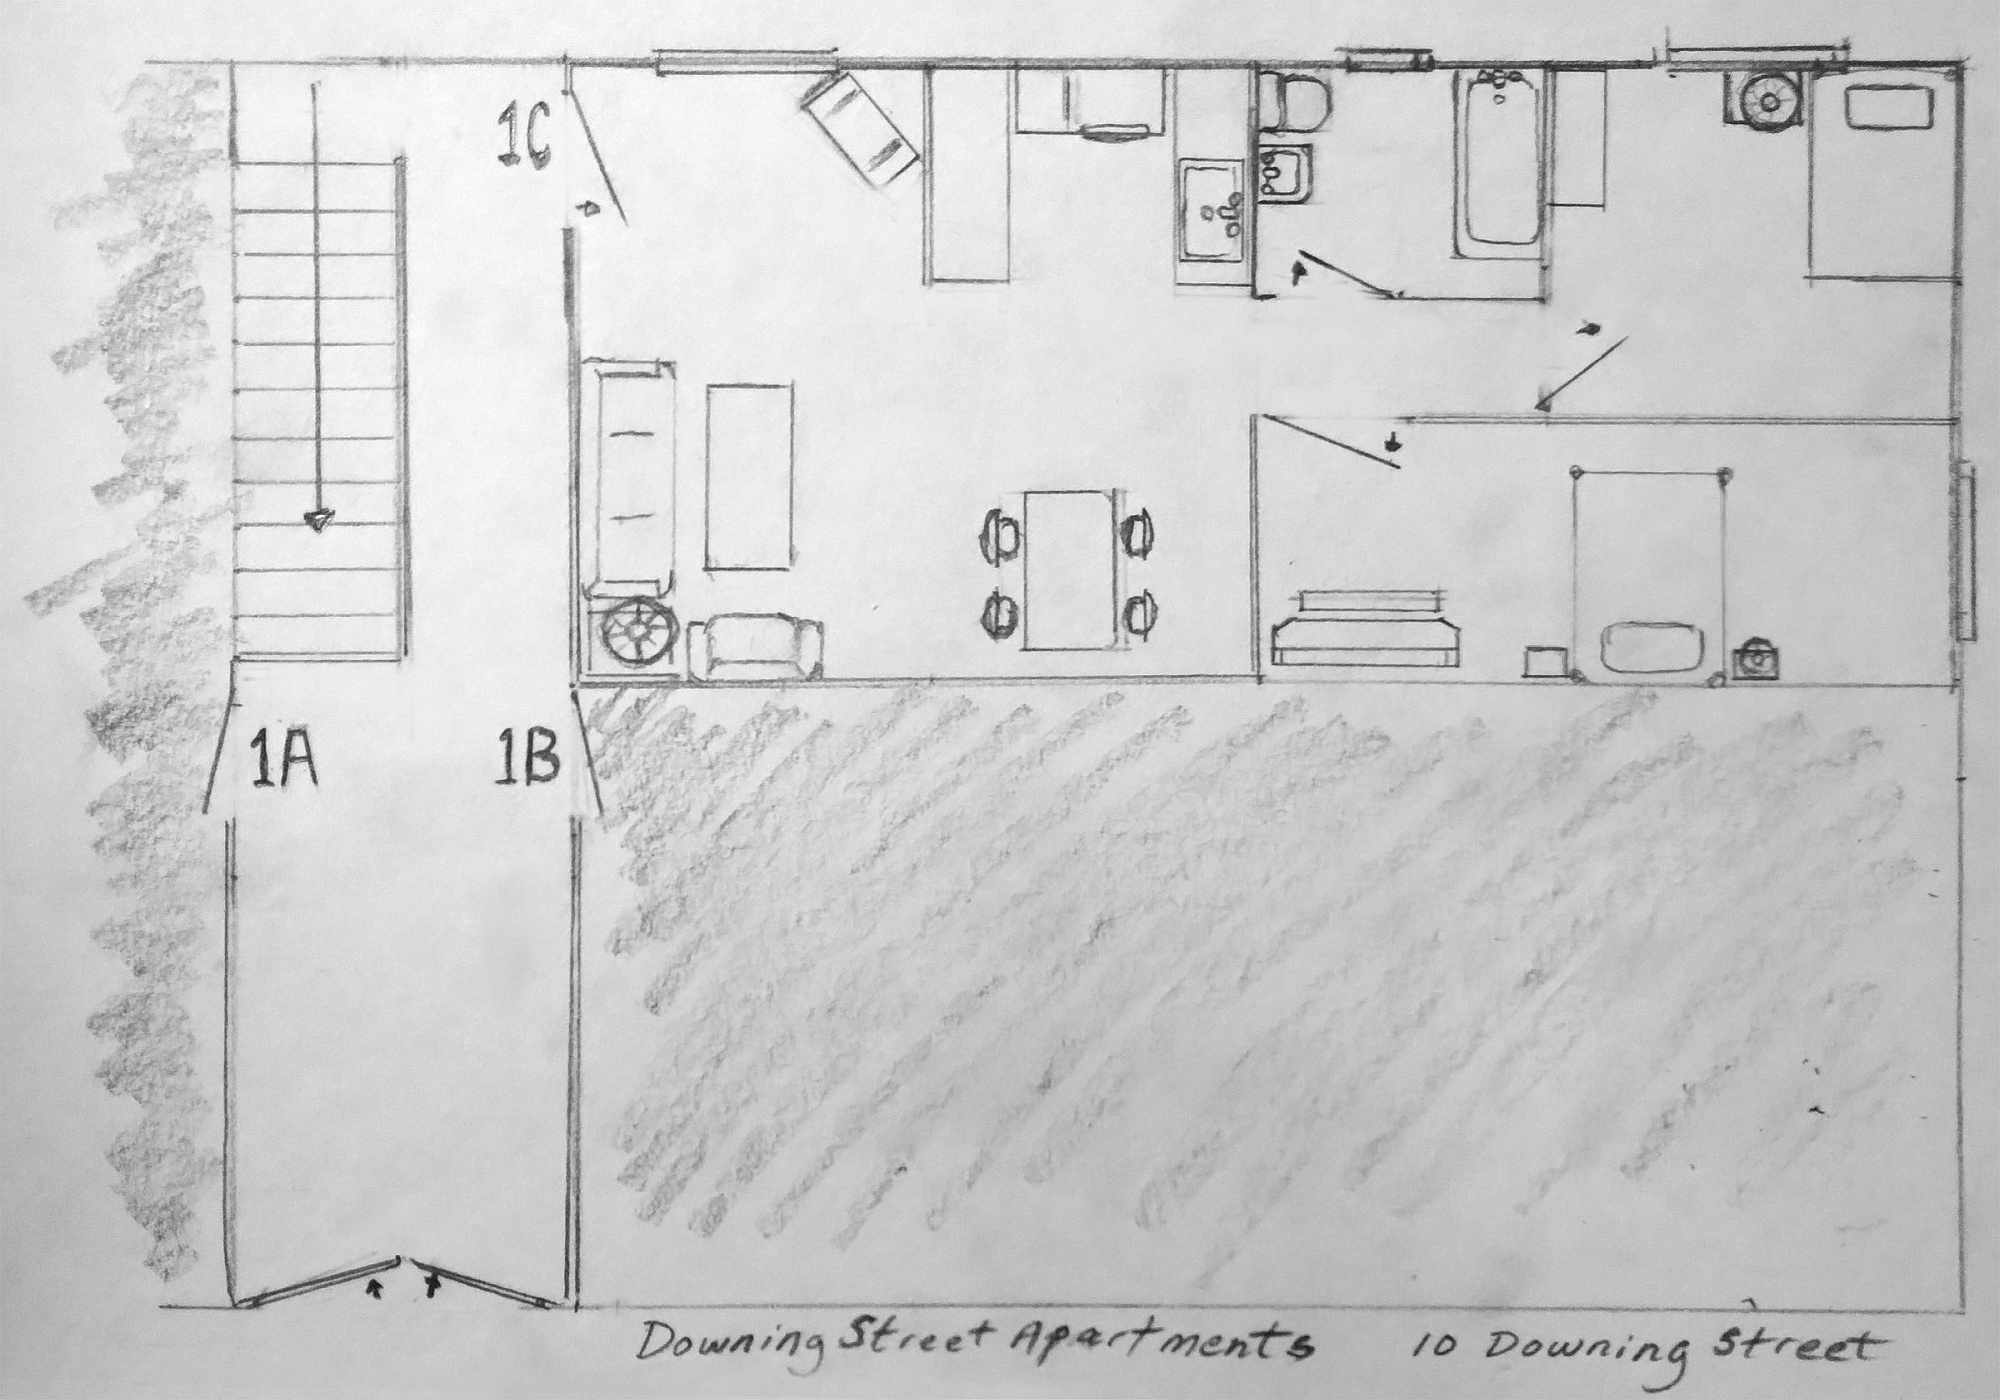 1C
1A
1B
Downing Street Apartments 10 Downing Street